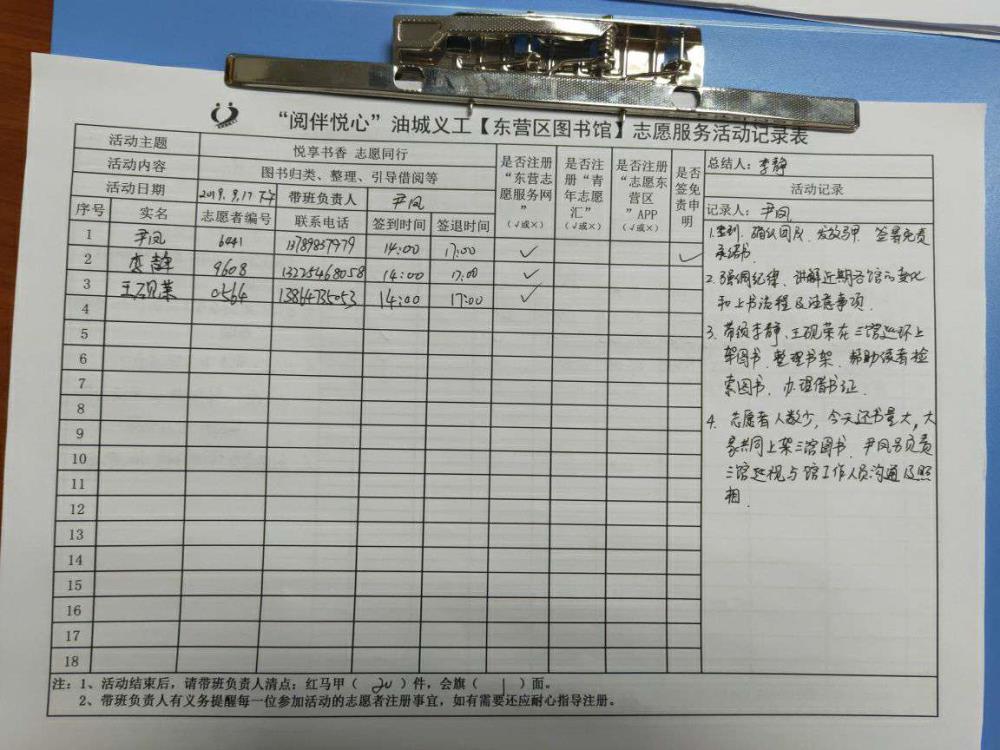 “阅伴悦心”油城义工【东营区图书馆】志愿服务活动记录表
活动主题 悦享书香 志愿同行
活动内容 图书归类、整理、引导借阅等
活动日期 2019.9.17 下午 带班负责人 尹凤
序号 实名 志愿者编号 联系电话 签到时间 签退时间 是否注册“东营志愿服务网”(√或×) 是否注册“青年志愿汇”(√或×) 是否注册“志愿东营区”APP(√或×) 是否签免责申明
1 尹凤 6441 13789837979 14:00 17:00 √
2 李静 9608 13225468058 14:00 17:00 √ √
3 王砚荣 0564 13864735053 14:00 17:00 √
4
5
6
7
8
9
10
11
12
13
14
15
16
17
18
总结人：李静
活动记录
记录人：尹凤
1.签到、确认回人、发放马甲 签署免责
承诺书
2.强调纪律、讲解近期各馆的变化
和上书流程及注意事项
3.带领李静、王砚荣在三馆巡环上
架图书、整理书架、帮助读者检
索图书、办理借书证
4.志愿者人数少，今天还书量大，大
家共同上架三馆图书 尹凤负责
三馆巡视与馆工作人员沟通及照
相
注：1、活动结束后，请带班负责人清点：红马甲（20）件，会旗（1）面。
2、带班负责人有义务提醒每一位参加活动的志愿者注册事宜，如有需要还应耐心指导注册。